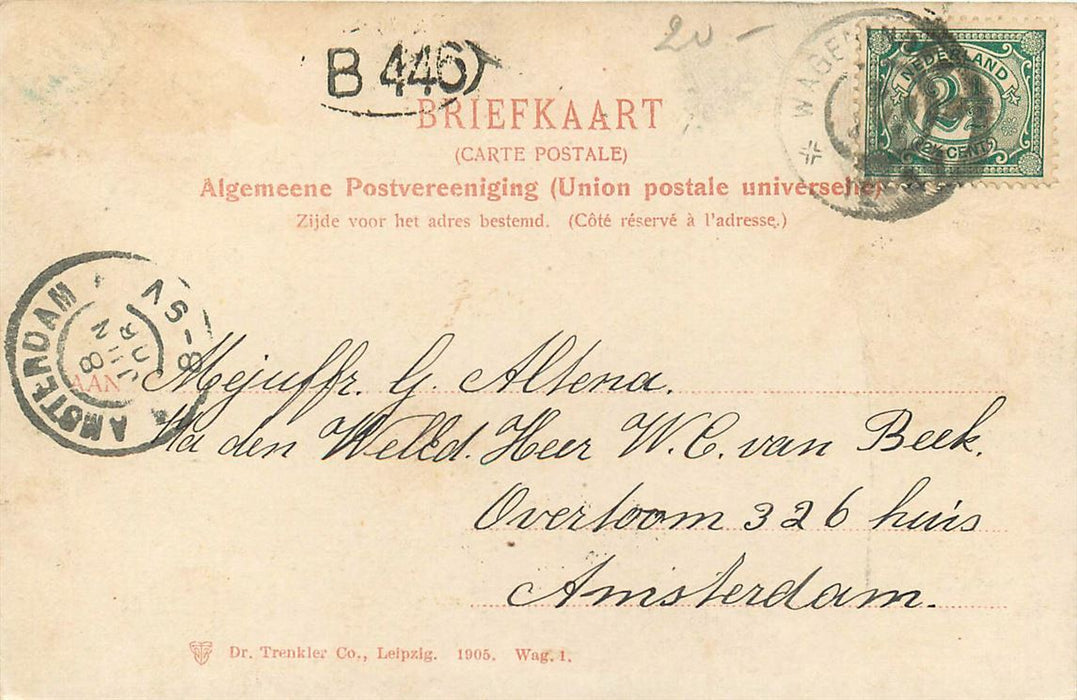 20.-
B 446
WAGENIN
NEDERLAND
2½
2½ CENT
BRIEFKAART
(CARTE POSTALE)
Algemeene Postvereeniging (Union postale universelle)
Zijde voor het adres bestemd. (Côté réservé à l'adresse.)
AMSTERDAM
8-9V
8
AAN Mejuffr. G. Altena.
den Heer W.C. van Beek.
Overtoom 326 huis
Amsterdam.
Dr. Trenkler Co., Leipzig. 1905. Wag. 1.